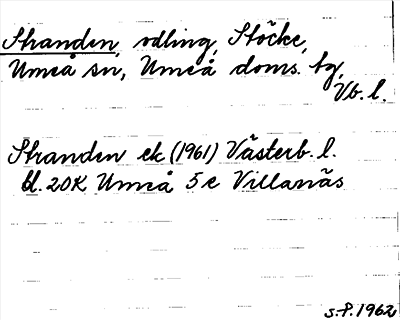 Stranden, odling, Stöcke,
Umeå sn, Umeå doms. tg,
Vb. l.
Stranden ek (1961) Västerb. l.
bl. 20K Umeå 5 c Villanäs
S.P. 1962